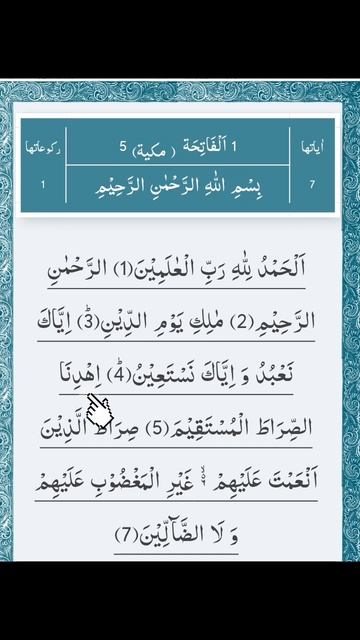 اٰیاتها 1 اَلْفَاتِحَة ( مكية) 5 ركوعاتها
7 بِسْمِ اللّٰهِ الرَّحْمٰنِ الرَّحِيْمِ 1
اَلْحَمْدُ لِلّٰهِ رَبِّ الْعٰلَمِيْنَ(1) الرَّحْمٰنِ
الرَّحِيْمِ(2) مٰلِكِ يَوْمِ الدِّيْنِ(3)ؕ اِيَّاكَ
نَعْبُدُ وَ اِيَّاكَ نَسْتَعِيْنُ(4)ؕ اِهْدِنَا
الصِّرَاطَ الْمُسْتَقِيْمَ(5) صِرَاطَ الَّذِيْنَ
اَنْعَمْتَ عَلَيْهِمْ ۙ۬ۦ غَيْرِ الْمَغْضُوْبِ عَلَيْهِمْ
وَ لَا الضَّآلِّيْنَ(7)